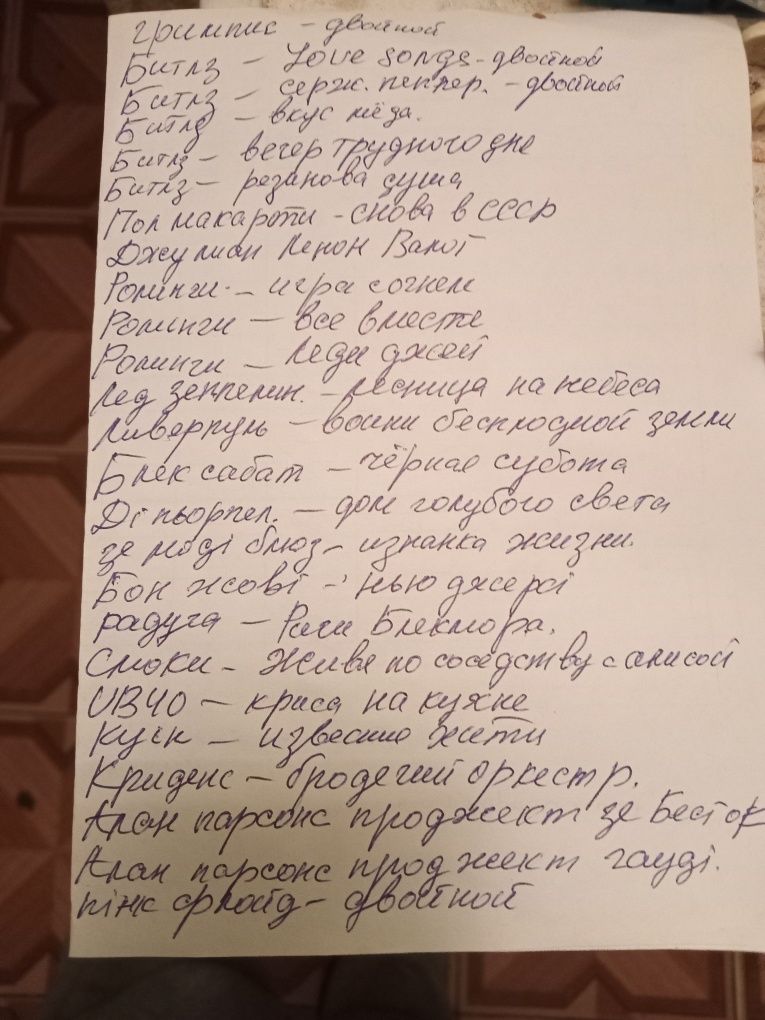 гримпис - двойной
Битлз - Love songs - двойной
Битлз - серж. пеппер. - двойной
Битлз - вкус мёда.
Битлз - вечер трудного дне
Битлз - резинова душа
Пол макартти - снова в СССР
Джулиан Ленон Валот
Ролинги - игра с огнем
Ролинги - все вместе
Ролинги - Леди джей
Лед зеппелин. - лесница на небеса
Ливерпуль - воини бесплодной земли
Блек сабат - чёрная субота
Ді пьорпел. - дом голубого света
зе моді блюз - изнанка жизни.
Бон жові - нью джерсі
радуга - Ричи Блекмора.
Смоки - Живя по соседству с алисой
UB40 - криса на кухне
Куін - известие хити
Криденс - бродечий оркестр.
Алан парсонс проджект зе Бест оф
Алан парсонс проджект гауді.
пінк флойд - двойной